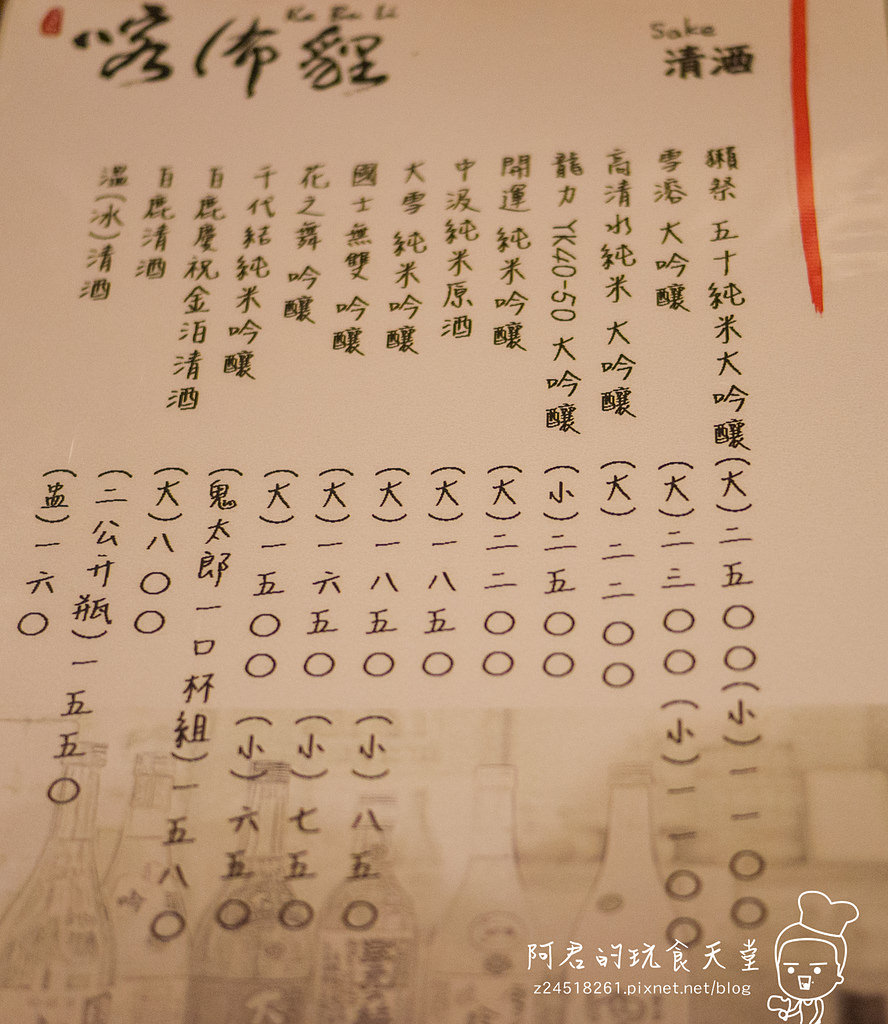 Ka Bu Li
喀佈貍
Sake
清酒
獺祭 五十純米大吟釀(大)二五〇〇(小)一一〇〇
雪溶 大吟釀(大)二三〇〇(小)一一〇〇
高清水純米 大吟釀(大)二二〇〇
龍力 YK40-50 大吟釀(小)二五〇〇
開運 純米吟釀(大)二二〇〇
中汲純米原酒(大)一八五〇
大雪 純米吟釀(大)一八五〇(小)八五〇
國士無雙 吟釀(大)一六五〇(小)七五〇
花之舞 吟釀(大)一五〇〇(小)六五〇
千代結純米吟釀(鬼太郎一口杯組)一五八〇
百鹿慶祝金泊清酒(大)八〇〇
百鹿清酒(二公升瓶)一五五〇
溫(冰)清酒(盅)一六〇
阿君的玩食天堂
z24518261.pixnet.net/blog